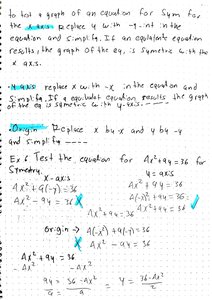 to test a graph of an equation for Sym for
the x axis Replace y with -y int in the
equation and simplify. If an equivalent equation
results, the graph of the eq, is symetric with the
x axis.
y axis replace x with -x in the equation and
simplify. If a equivalent equation results the graph
of the eq is symetric with y-axis. ----
Origin Replace x by -x and y by -y
and simplify ----
Ex 6 Test the equation for 4x²+9y=36 for
Symetry.
x-axis
y=axis
4x²+9(-y)=36
4x²+9y=36
4x²-9y=36 X
4(-x)²+9y=36
4x²+9y=36
4x²+9y=36 ✓
origin → 4(-x²)+9(-y)=36
X 4x²-9y=36
4x²+9y=36
-4x² -4x²
9y = 36-4x² = y = 36-4x²
9 9 9